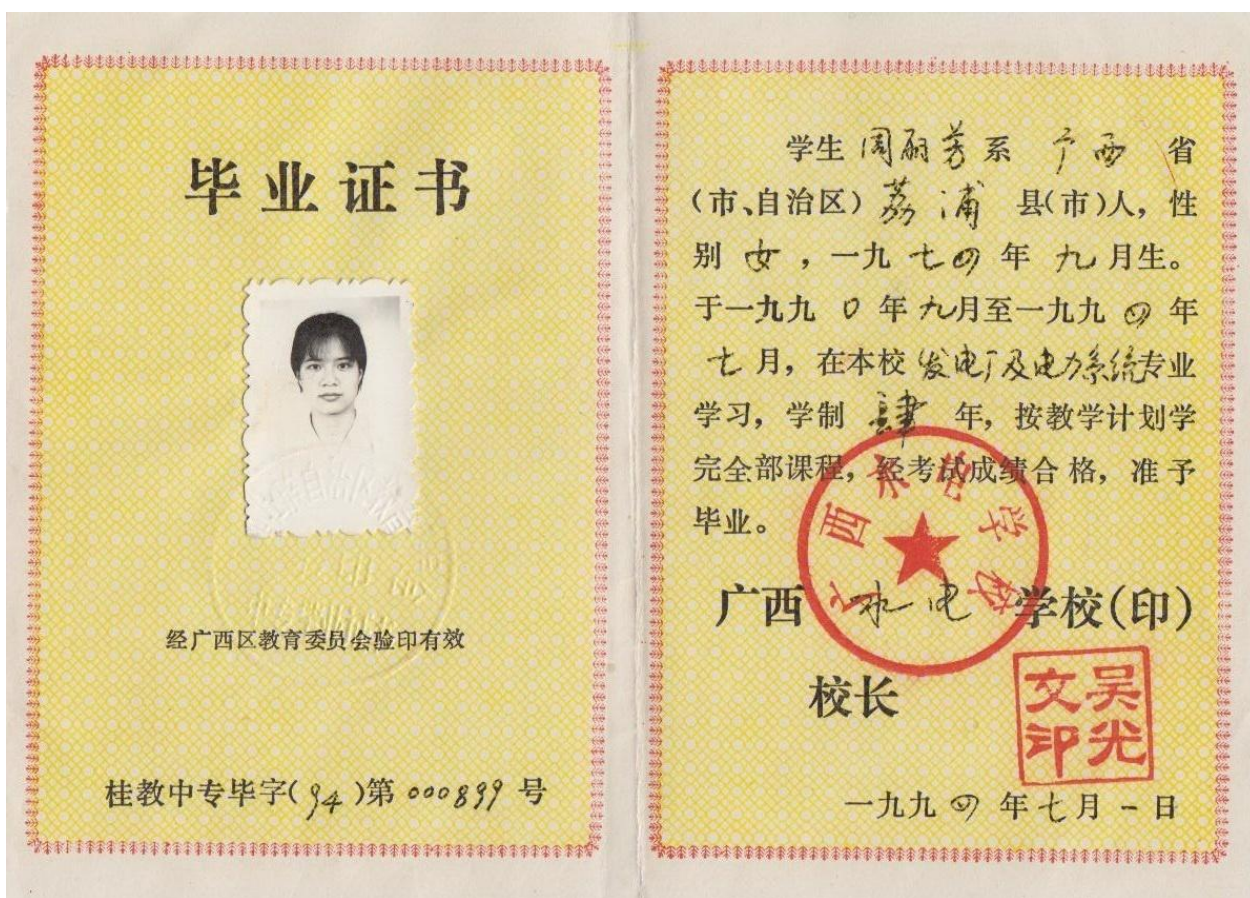 毕业证书
经广西区教育委员会验印有效
桂教中专毕字(94)第000899号
学生周丽芳系广西省
(市、自治区)荔浦县(市)人，性
别女，一九七四年九月生。
于一九九0年九月至一九九四年
七月，在本校发电厂及电力系统专业
学习，学制肆年，按教学计划学
完全部课程，经考试成绩合格，准予
毕业。
广西水电学校
广西水电学校(印)
校长
吴光文印
一九九四年七月一日